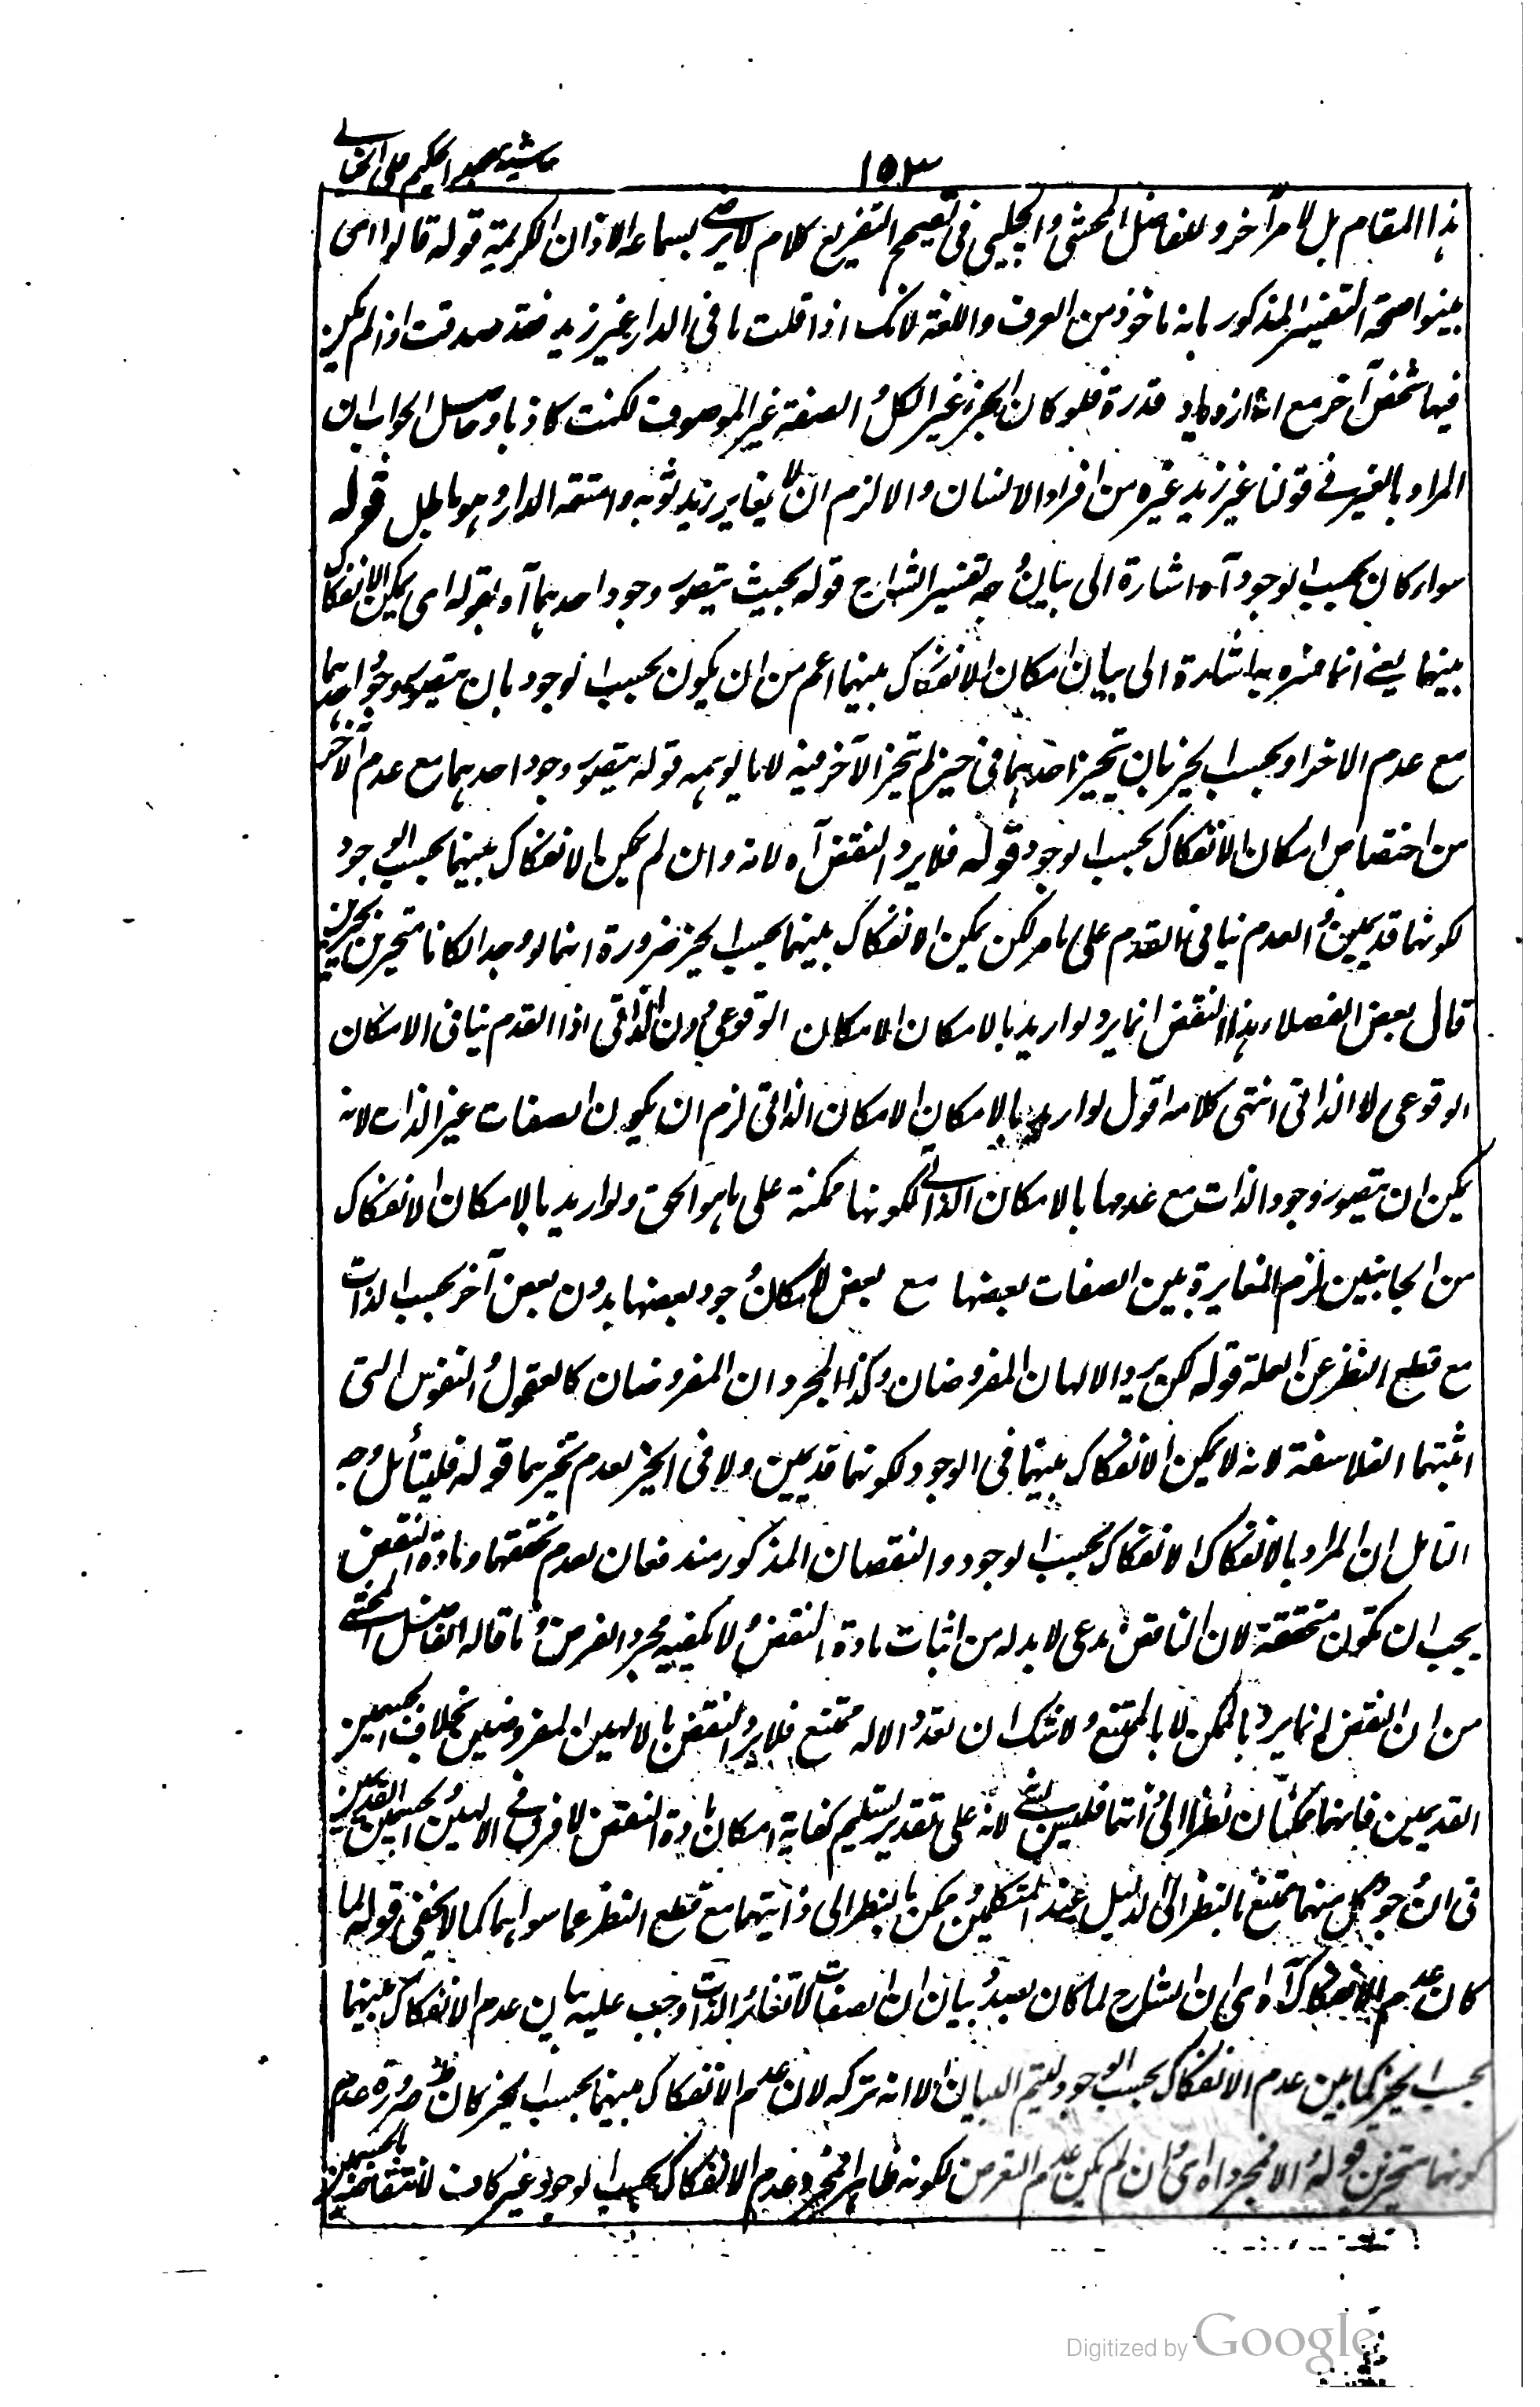 ١٥٣
حاشية عبد الحكيم على الخيالى
هذا المقام بل لامر آخر وللفاضل المحشى والچلپى فى تصحيح التفريع كلام لا يرضى بسماعه الاذان الكريمة قوله قالوا اى
بينوا صحة التفسير المذكور بانه ماخوذ من العرف واللغة لانك اذا قلت ما فى الدار غير زيد فقد صدقت اذا لم يكن
فيها شخص آخر مع ان ازد يد قدرة فلو كان الجزء غير الكل والصفة غير الموصوف لكنت كاذبا وحاصل الجواب ان
المراد بالغير فى قولنا غير زيد غيره من افراد الانسان والا لزم ان لا يغاير زيد ثوبه وامتعة الدار وهو باطل قوله
سواء كان بحسب الوجود آه اشارة الى بيان وجه تفسير الشارح قوله بحيث يتصور وجود احدهما آه بقوله اى يمكن الانفكاك
بينهما يعنى انما فسره به اشارة الى بيان امكان الانفكاك بينهما اعم من ان يكون بحسب الوجود بان يتصور وجود احدهما
مع عدم الاخر او بحسب الحيز بان يتحيز احدهما فى حيز لم يتحيز الآخر فيه لا ما يوهمه قوله يتصور وجود احدهما مع عدم الآخر
من اختصاص امكان الانفكاك بحسب الوجود قوله فلا يرد النقض آه لانه وان لم يمكن الانفكاك بينهما بحسب الوجود
لكونهما قديمين والعدم ينافى القدم على ما مر لكن يمكن الانفكاك بينهما بحسب الحيز ضرورة انهما لو وجدا لكانا متحيزين بحيزين
قال بعض الفضلاء هذا النقض انما يرد لو اريد بالامكان الامكان الوقوعى دون الذاتى اذا القدم ينافى الامكان
الوقوعى لا الذاتى انتهى كلامه اقول لو اريد بالامكان الامكان الذاتى لزم ان يكون الصفات غير الذات لانه
يمكن ان يتصور وجود الذات مع عدمها بالامكان الذاتى لكونها ممكنة على ما هو الحق ولو اريد بالامكان الانفكاك
من الجانبين لزم المغايرة بين الصفات بعضها مع بعض لامكان وجود بعضها بدون بعض آخر بحسب الذات
مع قطع النظر عن العلة قوله لكن يرد الالهان المفروضان وكذا المجردان المفروضان كالعقول والنفوس التى
اثبتها الفلاسفة لانه لا يمكن الانفكاك بينهما فى الوجود لكونهما قديمين ولا فى الحيز لعدم تحيزهما قوله فليتأمل وجه
التامل ان المراد بالانفكاك الانفكاك بحسب الوجود والنقضان المذكور مندفعان لعدم تحققهما ومادة النقض
يجب ان تكون متحققة لان الناقض مدعى لا بد له من اثبات مادة النقض ولا يكفيه مجرد الفرض وما قاله الفاضل المحشى
من ان النقض انما يرد بالممكن لا بالممتنع ولا شك ان تعدد الاله ممتنع فلا يرد النقض بالالهين المفروضين بخلاف الجسمين
القديمين فانهما ممكنان نظرا الى ذاتهما فليس بشئ لانه على تقدير تسليم كفاية امكان مادة النقض لا فرق فى الالهين والجسمين القديمين
فى ان وجود كل منهما ممتنع بالنظر الى الدليل عند المتكلمين وممكن بالنظر الى ذاتيتهما مع قطع النظر عما سواهما كما لا يخفى قوله لما
كان عدم الانفكاك آه اى ان الشارح لما كان بصدد بيان ان الصفات لا تغاير الذات وجب عليه بيان عدم الانفكاك بينهما
بحسب الحيز كما بين عدم الانفكاك بحسب الوجود ليتم البيان الا انه تركه لان عدم الانفكاك بينهما بحسب الحيز كان ظ ضرورة عدم
كونهما متحيزين قوله والا فمجرد آه اى وان لم يكن عدم التعرض لكونه ظاهرا فمجرد عدم الانفكاك بحسب الوجود غير كاف لانتقاضه بالجسمين
Digitized by Google